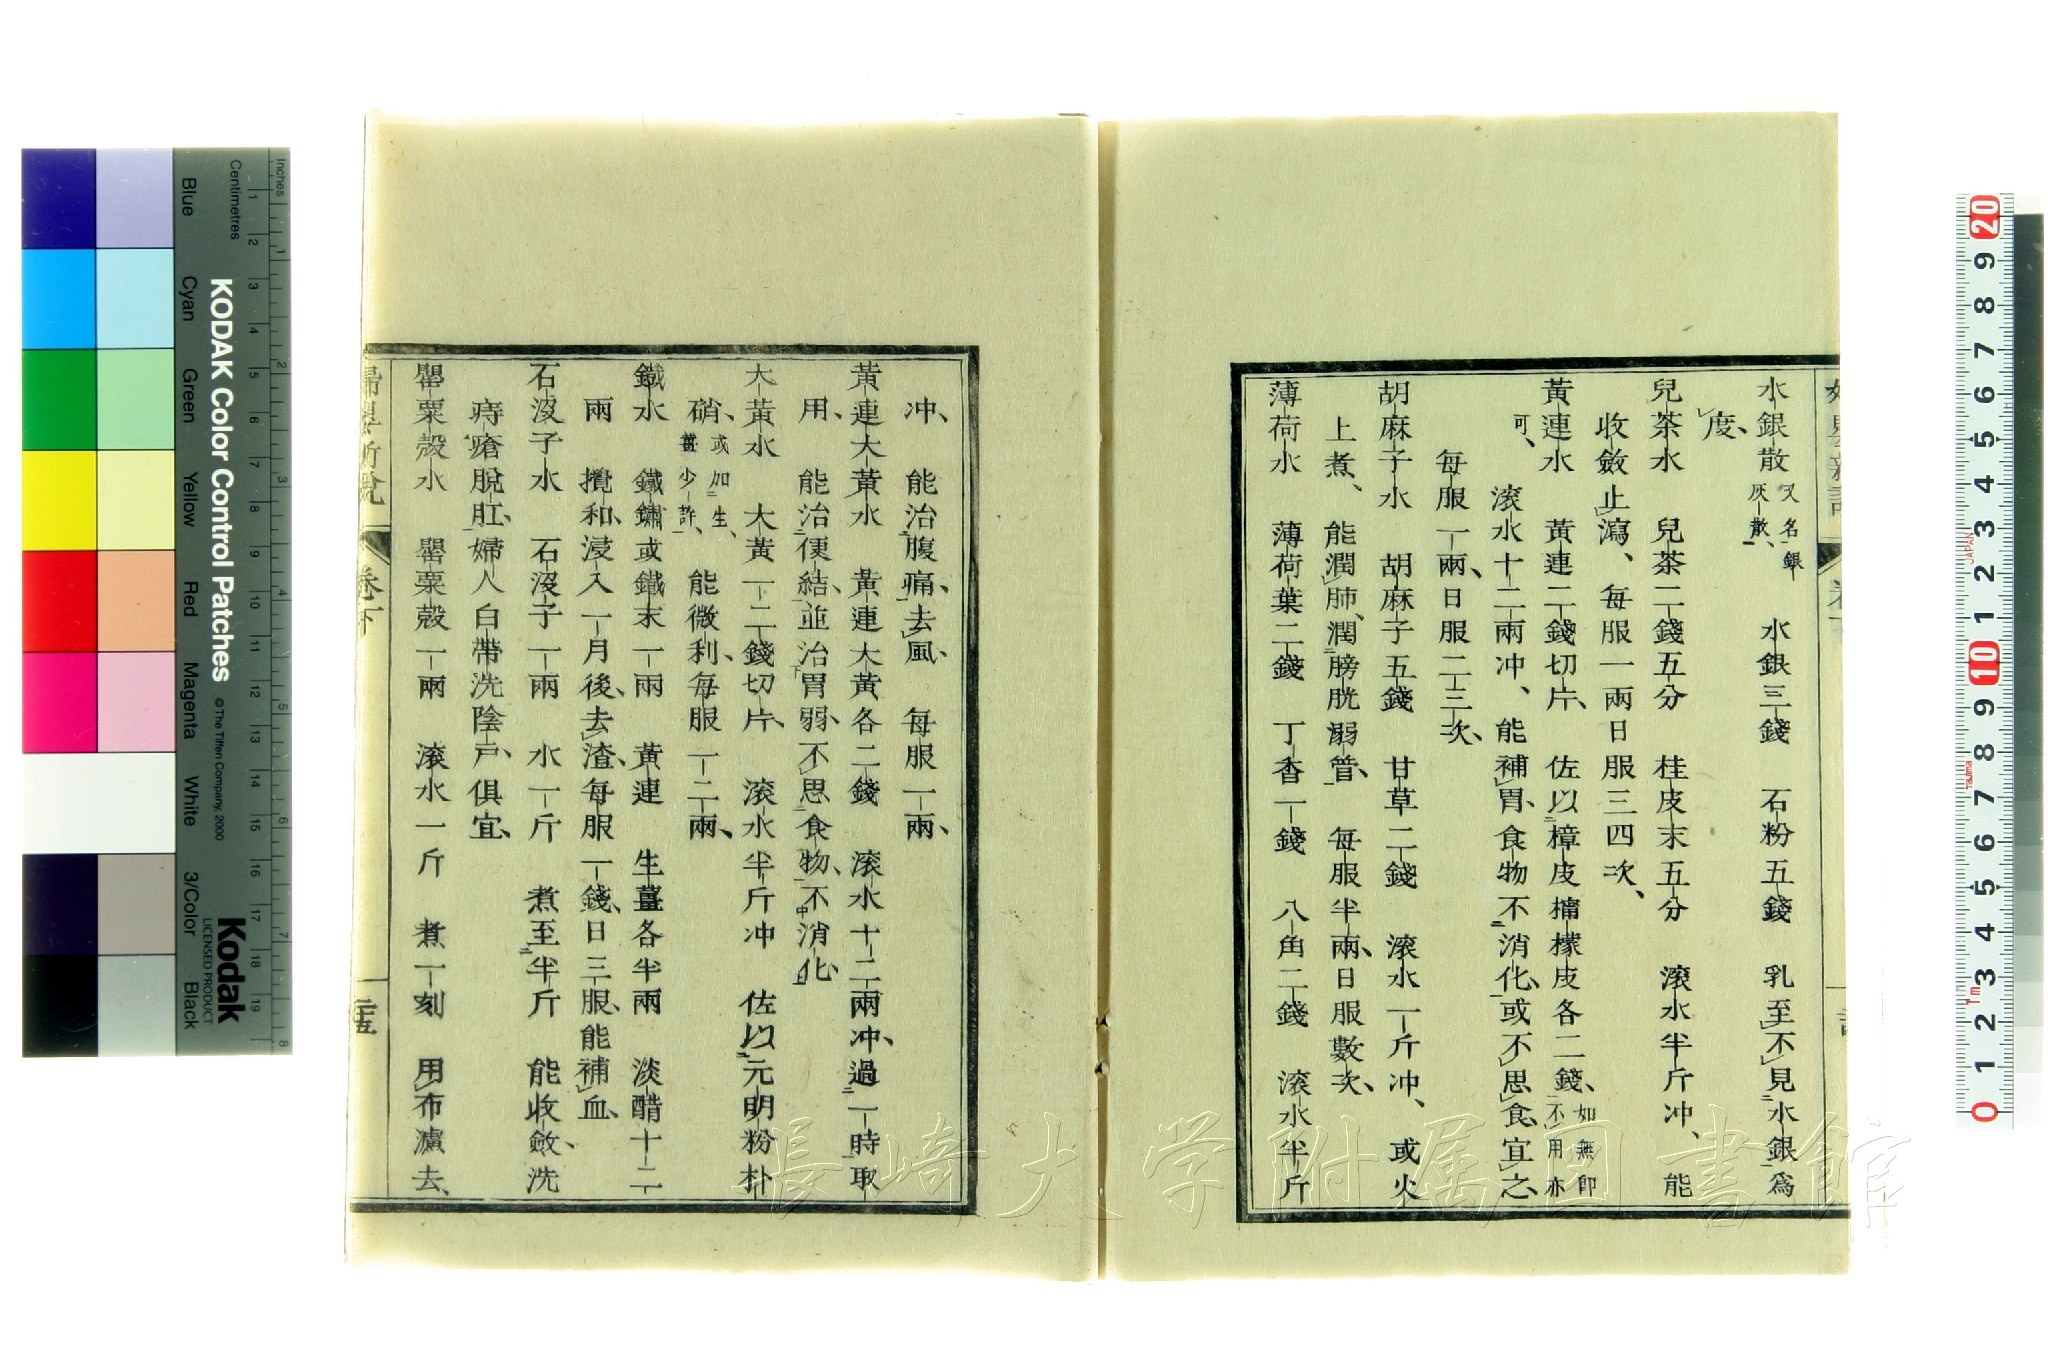 水銀散 又名銀灰散、 水銀三錢 石粉五錢 乳至不見水銀爲
度、
兒茶水 兒茶二錢五分 桂皮末五分 滚水半斤冲、能
收斂止瀉、每服一兩日服三四次、
黃連水 黃連二錢切片、佐以樟皮檽檬皮各二錢、如無卽不用亦
可、
滚水十二兩冲、能補胃、食物不消化、或不思食、宜之、
每服一兩、日服二三次、
胡麻子水 胡麻子五錢 甘草二錢 滚水一斤冲、或火
上煮、能潤肺、潤膀胱溺管、每服半兩、日服數次、
薄荷水 薄荷葉二錢 丁香一錢 八角二錢 滚水半斤
冲、能治腹痛、去風、每服一兩、
黃連大黃水 黃連大黃各二錢 滚水十二兩冲、過一時取
用、能治便結、並治胃弱、不思食物、不消化、
大黃水 大黃一二錢切片、滚水半斤冲 佐以元明粉朴
硝、或加生薑少許、能微利、每服一二兩、
鐵水 鐵鏽或鐵末一兩 黃連 生薑各半兩 淡醋十二
兩 攪和、浸入一月後、去渣、每服一錢、日三服、能補血、
石沒子水 石沒子一兩 水一斤 煮至半斤 能收斂、洗
痔瘡脫肛、婦人白帶洗陰戶、俱宜、
罌粟殼水 罌粟殼一兩 滚水一斤 煮一刻 用布濾去、
卷下
二十五
長崎大学附属図書館
KODAK Color Control Patches
© The Tiffen Company, 2000
Kodak
LICENSED PRODUCT
Inches
Centimetres
Blue Cyan Green Yellow Red Magenta White 3/Color Black
1 2 3 4 5 6 7 8 9 10 11 12 13 14 15 16 17 18 19
1 2 3 4 5 6 7 8
20 9 8 7 6 5 4 3 2 1 10 9 8 7 6 5 4 3 2 1 0
JAPAN